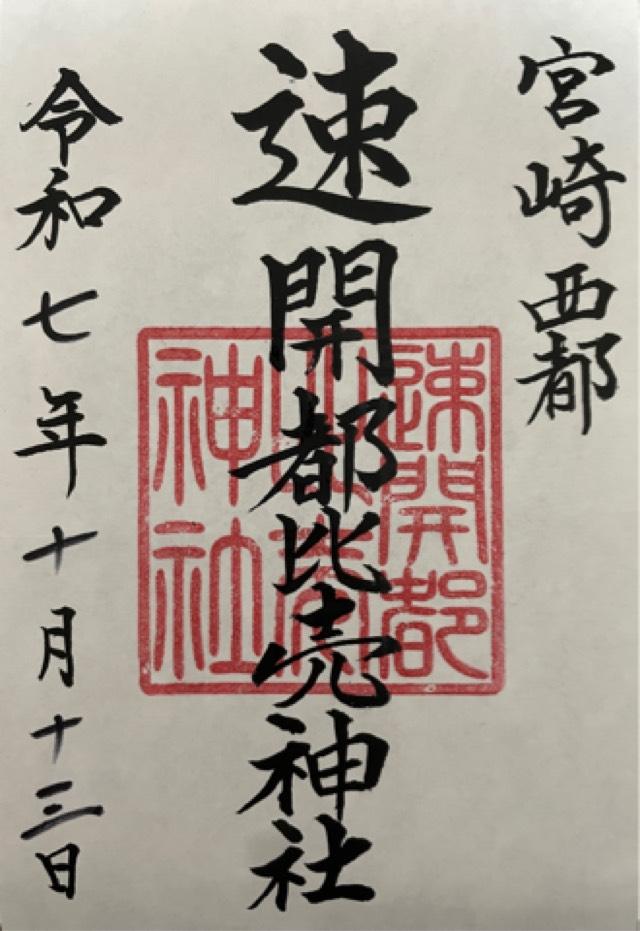 宮崎西都
速開都比売神社
令和七年十月十三日
速開都
神社